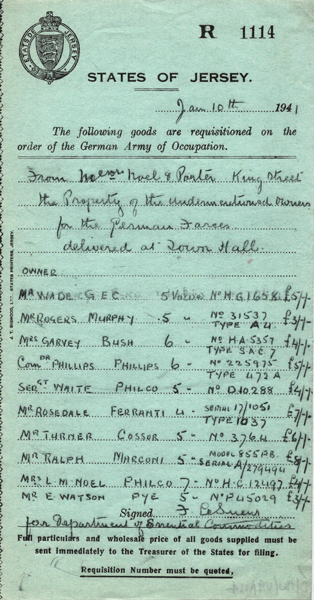 STATES OF JERSEY
R 1114
STATES OF JERSEY.
Jan 10th 1941
The following goods are requisitioned on the
order of the German Army of Occupation.
From Messrs Noel & Porter King Street
the Property of the undermentioned Owners
for the German Forces
delivered at Town Hall.
OWNER
Mr WADE G E C 5 Valve No H.G.1658 £5/-/-
Mr ROGERS MURPHY 5 " No 31537 TYPE A4. £3/-/-
Mrs GARVEY BUSH 6 " No H.A.5357 TYPE 3 A C 7 £4/-/-
Comdr PHILLIPS PHILLIPS 6 - No 225975 TYPE 473 A £5/-/-
Sergt WAITE PHILCO 5 - No D.10288 £4/-/-
Mr ROSEDALE FERRANTI 4 - SERIAL 17/1051 TYPE 1037 £7/-/-
Mr TURNER COSSOR 5 - No 3764 £6/-/-
Mr RALPH MARCONI 5 - MODEL 855PB. SERIAL A/274494 £8/-/-
Mrs L.M. NOEL PHILCO 7 - No H-C.13497 £4/-/-
Mr E WATSON PYE 5 " No P45029 £3/-/-
Signed F. Le Sueur
for Department of Essential Commodities
Full particulars and wholesale price of all goods supplied must be
sent immediately to the Treasurer of the States for filing.
Requisition Number must be quoted.